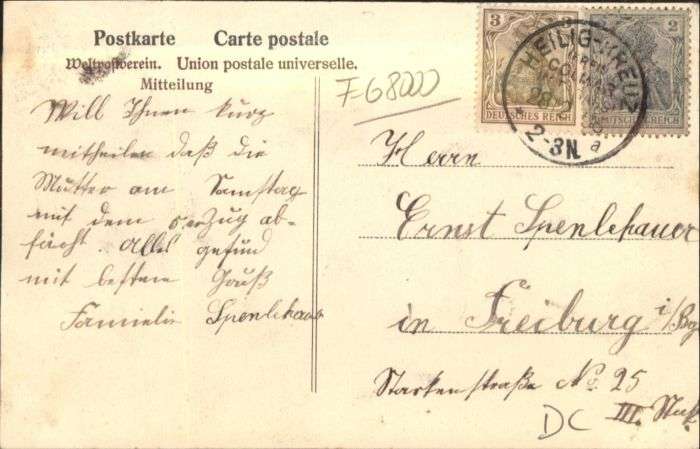 Postkarte Carte postale
Weltpostverein. Union postale universelle.
Mitteilung
Will Ihnen kurz
mitheilen daß die
Mutter am Samstag
mit dem 5 er Zug ab-
fährt. Alles gesund
mit bestem Gruß
Familie Spenlehauer
F-68000
3
DEUTSCHES REICH
2
DEUTSCHES REICH
HEILIG-KREUZ
2-3N a
Herrn
Ernst Spenlehauer
in Freiburg i/Bg
Starkenstraße No. 25
III. Stock
DC